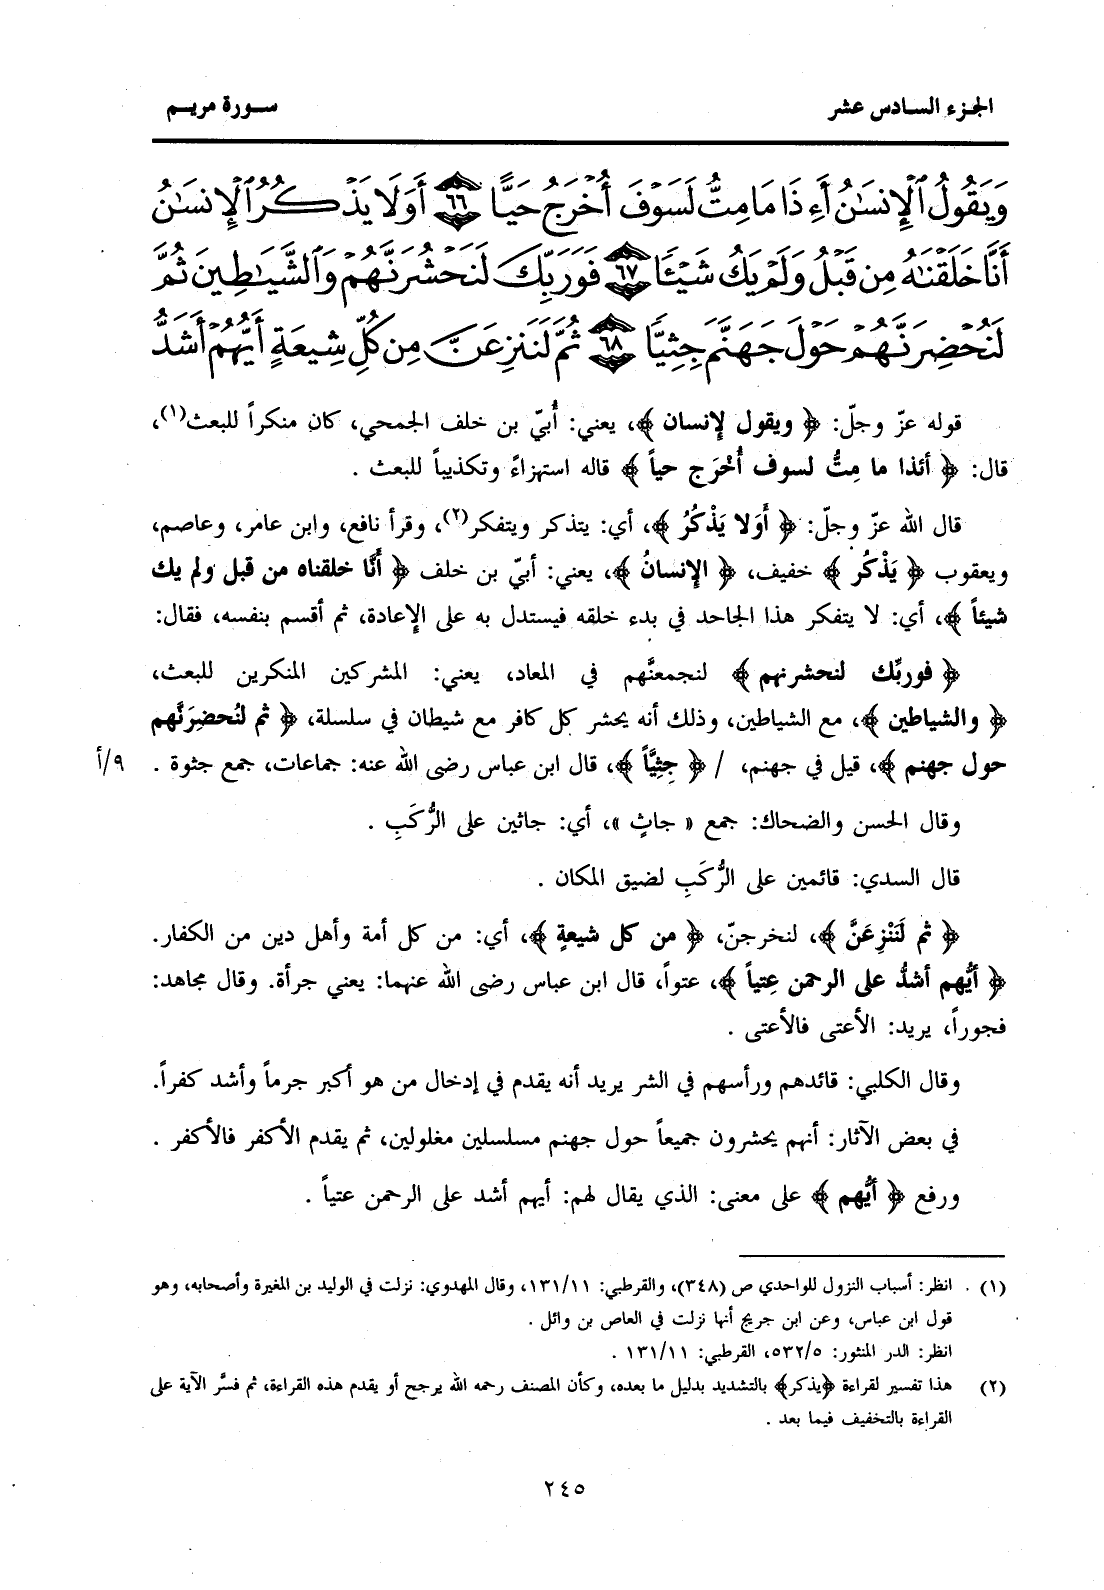 الجزء السادس عشر
سورة مريم
وَيَقُولُ ٱلْإِنسَٰنُ أَءِذَا مَا مِتُّ لَسَوْفَ أُخْرَجُ حَيًّا ﴿٦٦﴾ أَوَلَا يَذْكُرُ ٱلْإِنسَٰنُ
أَنَّا خَلَقْنَٰهُ مِن قَبْلُ وَلَمْ يَكُ شَيْـًٔا ﴿٦٧﴾ فَوَرَبِّكَ لَنَحْشُرَنَّهُمْ وَٱلشَّيَٰطِينَ ثُمَّ
لَنُحْضِرَنَّهُمْ حَوْلَ جَهَنَّمَ جِثِيًّا ﴿٦٨﴾ ثُمَّ لَنَنزِعَنَّ مِن كُلِّ شِيعَةٍ أَيُّهُمْ أَشَدُّ
قوله عزّ وجلّ: ﴿ ويقول لإنسان ﴾، يعني: أُبيّ بن خلف الجمحي، كان منكراً للبعث(١)،
قال: ﴿ أئذا ما مِتُّ لسوف أُخْرَج حياً ﴾ قاله استهزاءً وتكذيباً للبعث .
قال الله عزّ وجلّ: ﴿ أَوَلا يَذْكُرُ ﴾، أي: يتذكر ويتفكر(٢)، وقرأ نافع، وابن عامر، وعاصم،
ويعقوب ﴿ يَذْكُر ﴾ خفيف، ﴿ الإنسانُ ﴾، يعني: أبيّ بن خلف ﴿ أنَّا خلقناه من قبل ولم يك
شيئاً ﴾، أي: لا يتفكر هذا الجاحد في بدء خلقه فيستدل به على الإعادة، ثم أقسم بنفسه، فقال:
﴿ فوربِّك لنحشرنهم ﴾ لنجمعنَّهم في المعاد، يعني: المشركين المنكرين للبعث،
﴿ والشياطين ﴾، مع الشياطين، وذلك أنه يحشر كل كافر مع شيطان في سلسلة، ﴿ ثم لنُحضِرَنَّهم
حول جهنم ﴾، قيل في جهنم، / ﴿ جِثِيَّاً ﴾، قال ابن عباس رضى الله عنه: جماعات، جمع جثوة . ٩/أ
وقال الحسن والضحاك: جمع « جاثٍ »، أي: جاثين على الرُّكَبِ .
قال السدي: قائمين على الرُّكَبِ لضيق المكان .
﴿ ثم لَنَنْزِعَنَّ ﴾، لنخرجنّ، ﴿ من كل شيعةٍ ﴾، أي: من كل أمة وأهل دين من الكفار.
﴿ أيُّهم أشدُّ على الرحمن عِتياً ﴾، عتواً، قال ابن عباس رضى الله عنهما: يعني جرأة. وقال مجاهد:
فجوراً، يريد: الأعتى فالأعتى .
وقال الكلبي: قائدهم ورأسهم في الشر يريد أنه يقدم في إدخال من هو أكبر جرماً وأشد كفراً.
في بعض الآثار: أنهم يحشرون جميعاً حول جهنم مسلسلين مغلولين، ثم يقدم الأكفر فالأكفر .
ورفع ﴿ أيُّهم ﴾ على معنى: الذي يقال لهم: أيهم أشد على الرحمن عتياً .
(١) . انظر: أسباب النزول للواحدي ص (٣٤٨)، والقرطبي: ١٣١/١١، وقال المهدوي: نزلت في الوليد بن المغيرة وأصحابه، وهو
قول ابن عباس، وعن ابن جريج أنها نزلت في العاص بن وائل .
انظر: الدر المنثور: ٥٣٢/٥، القرطبي: ١٣١/١١ .
(٢) هذا تفسير لقراءة ﴿يذكر﴾ بالتشديد بدليل ما بعده، وكأن المصنف رحمه الله يرجح أو يقدم هذه القراءة، ثم فسَّر الآية على
القراءة بالتخفيف فيما بعد .
٢٤٥